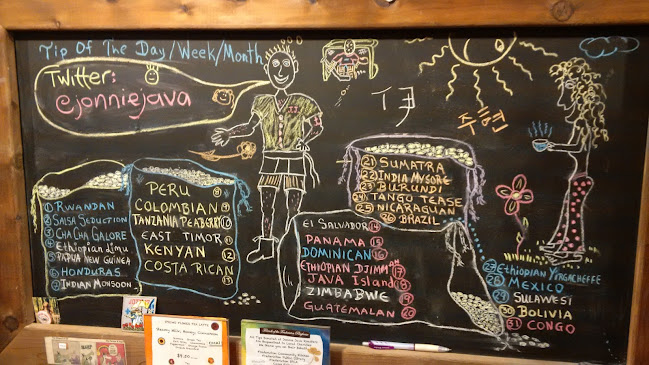 Tip Of The Day/Week/Month
Twitter:
@jonniejava
伊
주현
1 Rwandan
2 Salsa Seduction
3 Cha Cha Galore
4 Ethiopian Limu
5 Papua New Guinea
6 Honduras
7 Indian Monsoon
Peru 8
Colombian 9
Tanzania Peaberry 10
East Timor 11
Kenyan 12
Costa Rican 13
El Salvador 14
Panama 15
Dominican 16
Ethiopian Djimmah 17
Java Island 18
Zimbabwe 19
Guatemalan 20
21 Sumatra
22 India Mysore
23 Burundi
24 Tango Tease
25 Nicaraguan
26 Brazil
27 Ethiopian Yirgacheffe
28 Mexico
29 Sulawesi
30 Bolivia
31 Congo